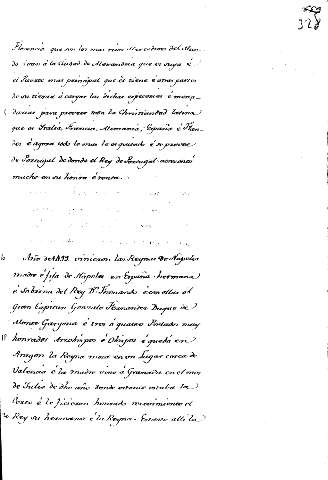 328
Florencia que son los mas ricos Mercaderes del Mun-
do iban á la Ciudad de Alexandria que es suya é
el Puerto mas principal que él tiene é otras partes
de su tierra á cargar las dichas especerias é merca-
durias para proveer toda la Christiandad
que es Italia, Francia, Alemania, España é Flan-
des é agora todo lo mas le es quitado é se provee
de Portugal de donde el Rey de Portugal acrecentó
mucho en su honra é renta.
Año de 1499 vinieron las Reynas de Napoles
madre é fija de Napoles en España hermana
é Sobrina del Rey Dn. Fernando é con ellas el
Gran Capitan Gonzalo Fernandez Duque de
é tres ó quatro Perlados muy
honrados Arzobispos é Obispos é quedó en
Aragon la Reyna moza en un Lugar cerca de
Valencia é la madre vino á Granada en el mes
de Julio de dho año donde estaba la
Corte é le ficieron honrado recivimiento el
Rey su hermano é la Reyna. Estuvo alli la